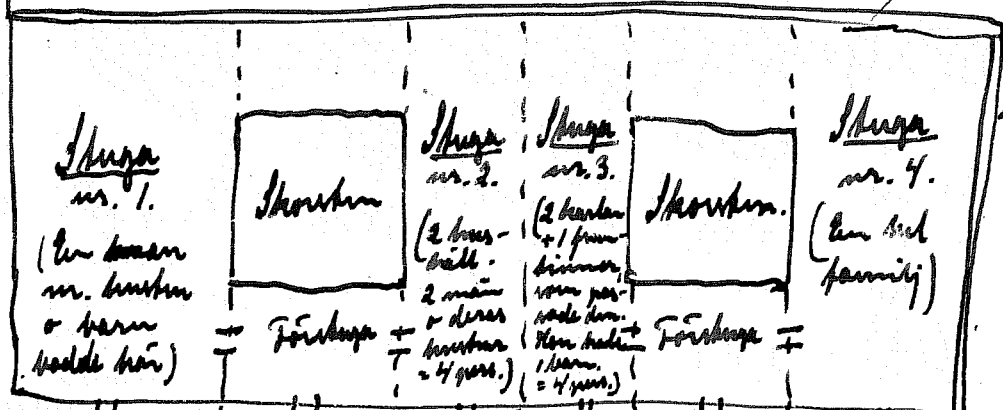 Stuga
nr. 1.
(En man
m. hustru
o barn
bodde här)
Skorsten
Förstuga
Stuga
nr. 2.
(2 hus-
håll.
2 män
o deras
hustrur
= 4 pers.)
Stuga
nr. 3.
(2 karlar
+ 1 frun-
timmer,
som pas-
sade dem.
Hon hade
1 barn.
= 4 pers.)
Skorsten.
Förstuga
Stuga
nr. 4.
(En hel
familj)